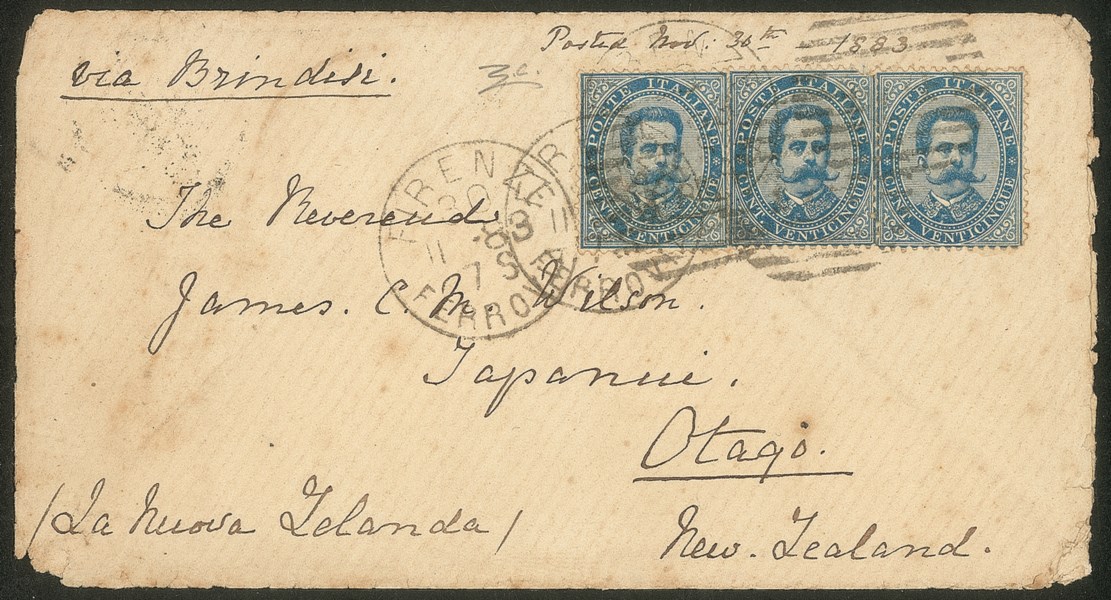 Posted Nov. 30th 1883
via Brindisi.
3c.
POSTE ITALIANE
CENT. VENTICINQUE
POSTE ITALIANE
CENT. VENTICINQUE
POSTE ITALIANE
CENT. VENTICINQUE
FIRENZE
FERROV
FERROV
The Reverend
James. C. M. Wilson.
Tapanui.
Otago.
(La Nuova Zelanda)
New. Zealand.